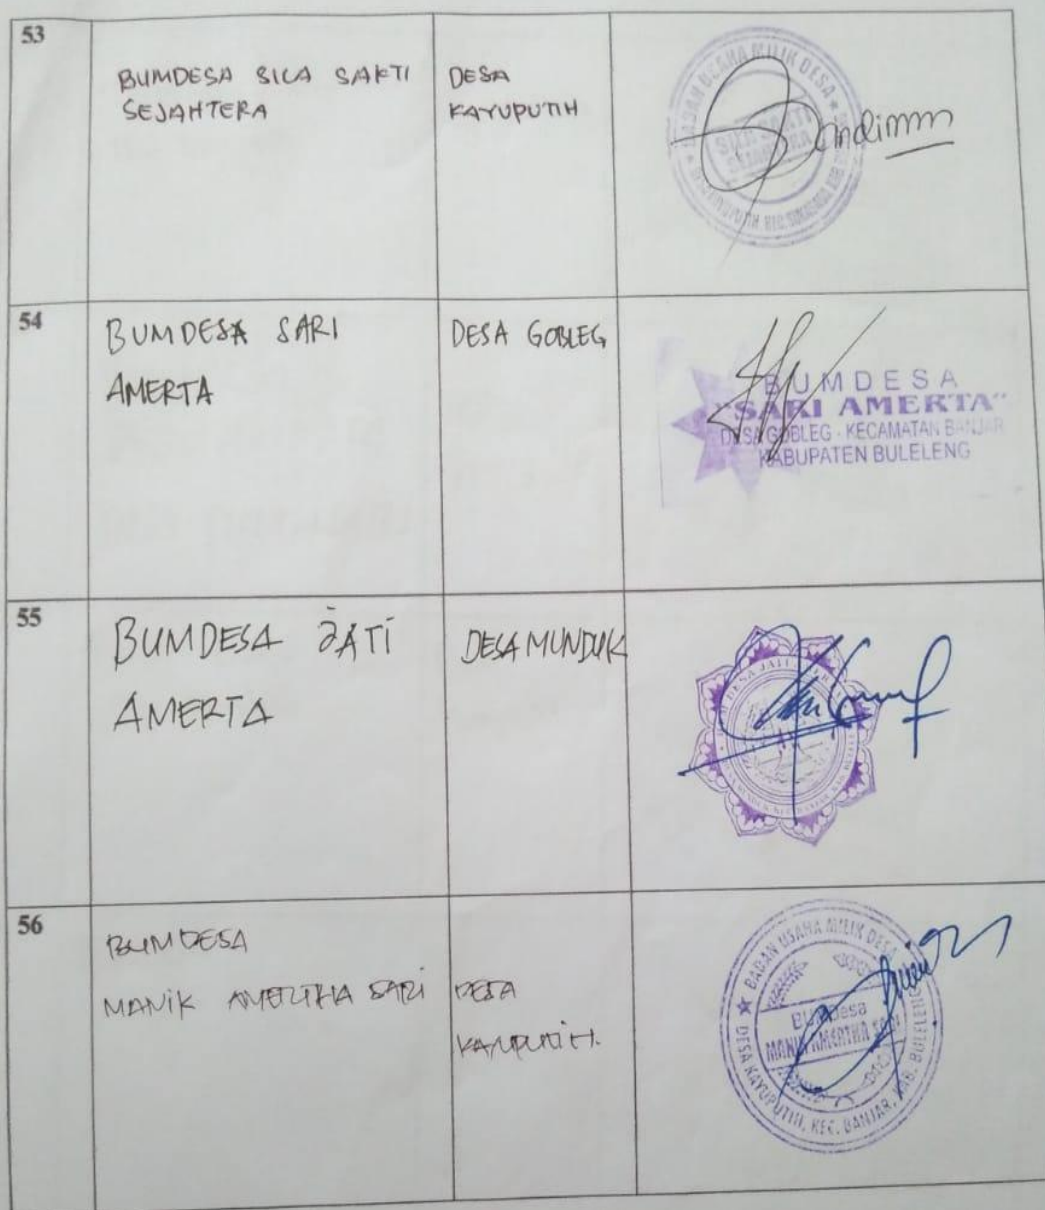 53
BUMDESA SICA SAKTI
SEJAHTERA
DESA
KAYUPUTIH
BADAN USAHA MILIK DESA
SEJAHTERA
54
BUMDESA SARI
AMERTA
DESA GOBLEG
BUMDESA
"SARI AMERTA"
DESA GOBLEG - KECAMATAN BANJAR
KABUPATEN BULELENG
55
BUMDESA JATI
AMERTA
DESA MUNDUK
56
BUMDESA
MANIK AMERTHA SARI
DESA
KAYUPUTIH.
BADAN USAHA MILIK DESA
BUMDesa
MANIK AMERTHA SARI
DESA KAYUPUTIH, KEC. BANJAR, KAB. BULELENG